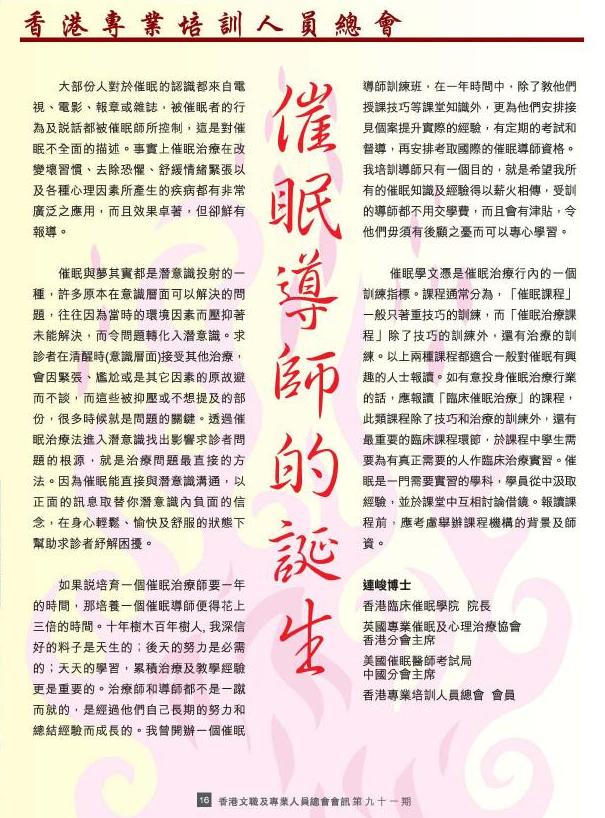 香港專業培訓人員總會
催眠導師的誕生
大部份人對於催眠的認識都來自電
視、電影、報章或雜誌，被催眠者的行
為及說話都被催眠師所控制，這是對催
眠不全面的描述。事實上催眠治療在改
變壞習慣、去除恐懼、舒緩情緒緊張以
及各種心理因素所產生的疾病都有非常
廣泛之應用，而且效果卓著，但卻鮮有
報導。
催眠與夢其實都是潛意識投射的一
種，許多原本在意識層面可以解決的問
題，往往因為當時的環境因素而壓抑著
未能解決，而令問題轉化入潛意識。求
診者在清醒時(意識層面)接受其他治療，
會因緊張、尷尬或是其它因素的原故避
而不談，而這些被抑壓或不想提及的部
份，很多時候就是問題的關鍵。透過催
眠治療法進入潛意識找出影響求診者問
題的根源，就是治療問題最直接的方
法。因為催眠能直接與潛意識溝通，以
正面的訊息取替你潛意識內負面的信
念，在身心輕鬆、愉快及舒服的狀態下
幫助求診者紓解困擾。
如果說培育一個催眠治療師要一年
的時間，那培養一個催眠導師便得花上
三倍的時間。十年樹木百年樹人, 我深信
好的料子是天生的；後天的努力是必需
的；天天的學習，累積治療及教學經驗
更是重要的。治療師和導師都不是一蹴
而就的，是經過他們自己長期的努力和
總結經驗而成長的。我曾開辦一個催眠
導師訓練班，在一年時間中，除了教他們
授課技巧等課堂知識外，更為他們安排接
見個案提升實際的經驗，有定期的考試和
督導，再安排考取國際的催眠導師資格。
我培訓導師只有一個目的，就是希望我所
有的催眠知識及經驗得以薪火相傳，受訓
的導師都不用交學費，而且會有津貼，令
他們毋須有後顧之憂而可以專心學習。
催眠學文憑是催眠治療行內的一個
訓練指標。課程通常分為，「催眠課程」
一般只著重技巧的訓練，而「催眠治療課
程」除了技巧的訓練外，還有治療的訓
練。以上兩種課程都適合一般對催眠有興
趣的人士報讀。如有意投身催眠治療行業
的話，應報讀「臨床催眠治療」的課程，
此類課程除了技巧和治療的訓練外，還有
最重要的臨床課程環節，於課程中學生需
要為有真正需要的人作臨床治療實習。催
眠是一門需要實習的學科，學員從中汲取
經驗，並於課堂中互相討論借鏡。報讀課
程前，應考慮舉辦課程機構的背景及師
資。
連峻博士
香港臨床催眠學院 院長
英國專業催眠及心理治療協會
香港分會主席
美國催眠醫師考試局
中國分會主席
香港專業培訓人員總會 會員
16 香港文職及專業人員總會會訊第九十一期